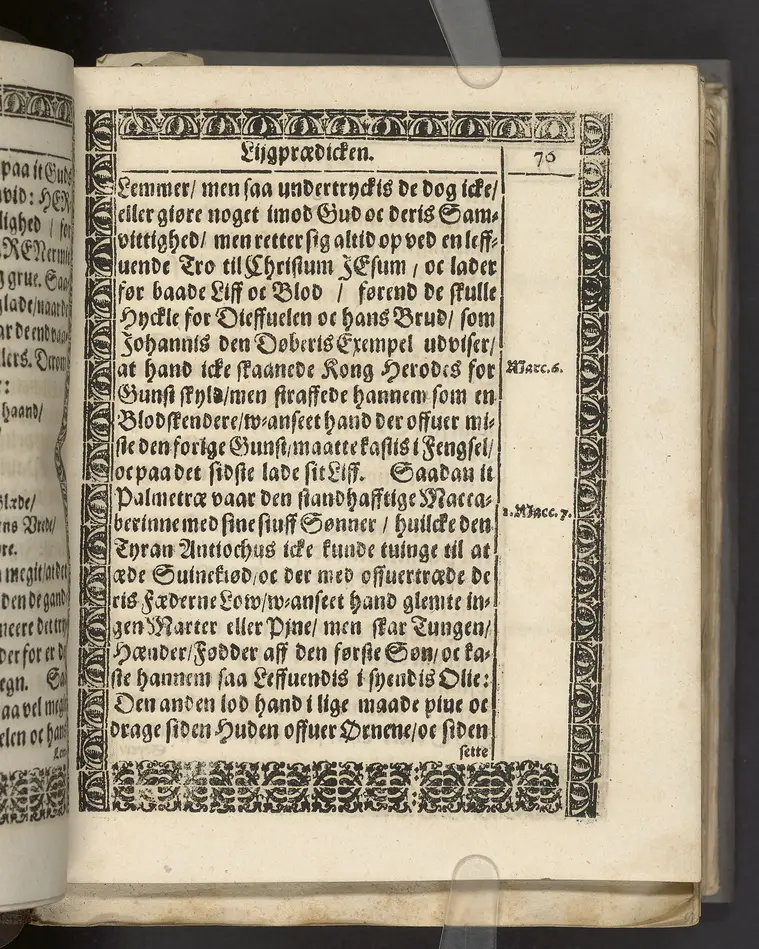 paa it Guds
vid: HER
lighed / for
RENermit
g grue. Saa
glade/naar de
ar de end vaar
lers. Derom
:
haand/
Glæde/
ens Vrede/
re.
megit/at det
den de gand
ncere det try
der for er di
egn. Saa
aa vel megit
elen oc hans
Lem
Lijgprædicken.
76
Lemmer/ men saa undertryckis de dog icke/
eller giøre noget imod Gud oc deris Sam-
vittighed/ men retter sig altid op ved en leff-
uende Tro til Christum JEsum / oc lader
før baade Liff oc Blod / førend de skulle
Hyckle for Dieffuelen oc hans Brud/ som
Johannis den Døberis Exempel udviser/
at hand icke skaanede Kong Herodes for
Marc. 6.
Gunst skyld/men straffede hannem som en
Blodskendere/w-anseet hand der offuer mi-
ste den forige Gunst/maatte kastis i Fengsel/
oc paa det sidste lade sit Liff. Saadan it
Palmetræ vaar den standhafftige Macca-
2. Macc. 7.
berinne med sine siuff Sønner / huilcke den
Tyran Antiochus icke kunde tuinge til at
æde Suinekiød/oc der med offuertræde de
ris Fæderne Low/w-anseet hand glemte in-
gen Marter eller Pine/ men skar Tungen/
Hænder/Fødder aff den første Søn/oc ka-
ste hannem saa Leffuendis i syendis Olie:
Den anden lod hand i lige maade pine oc
drage siden Huden offuer Ørnene/oc siden
sette